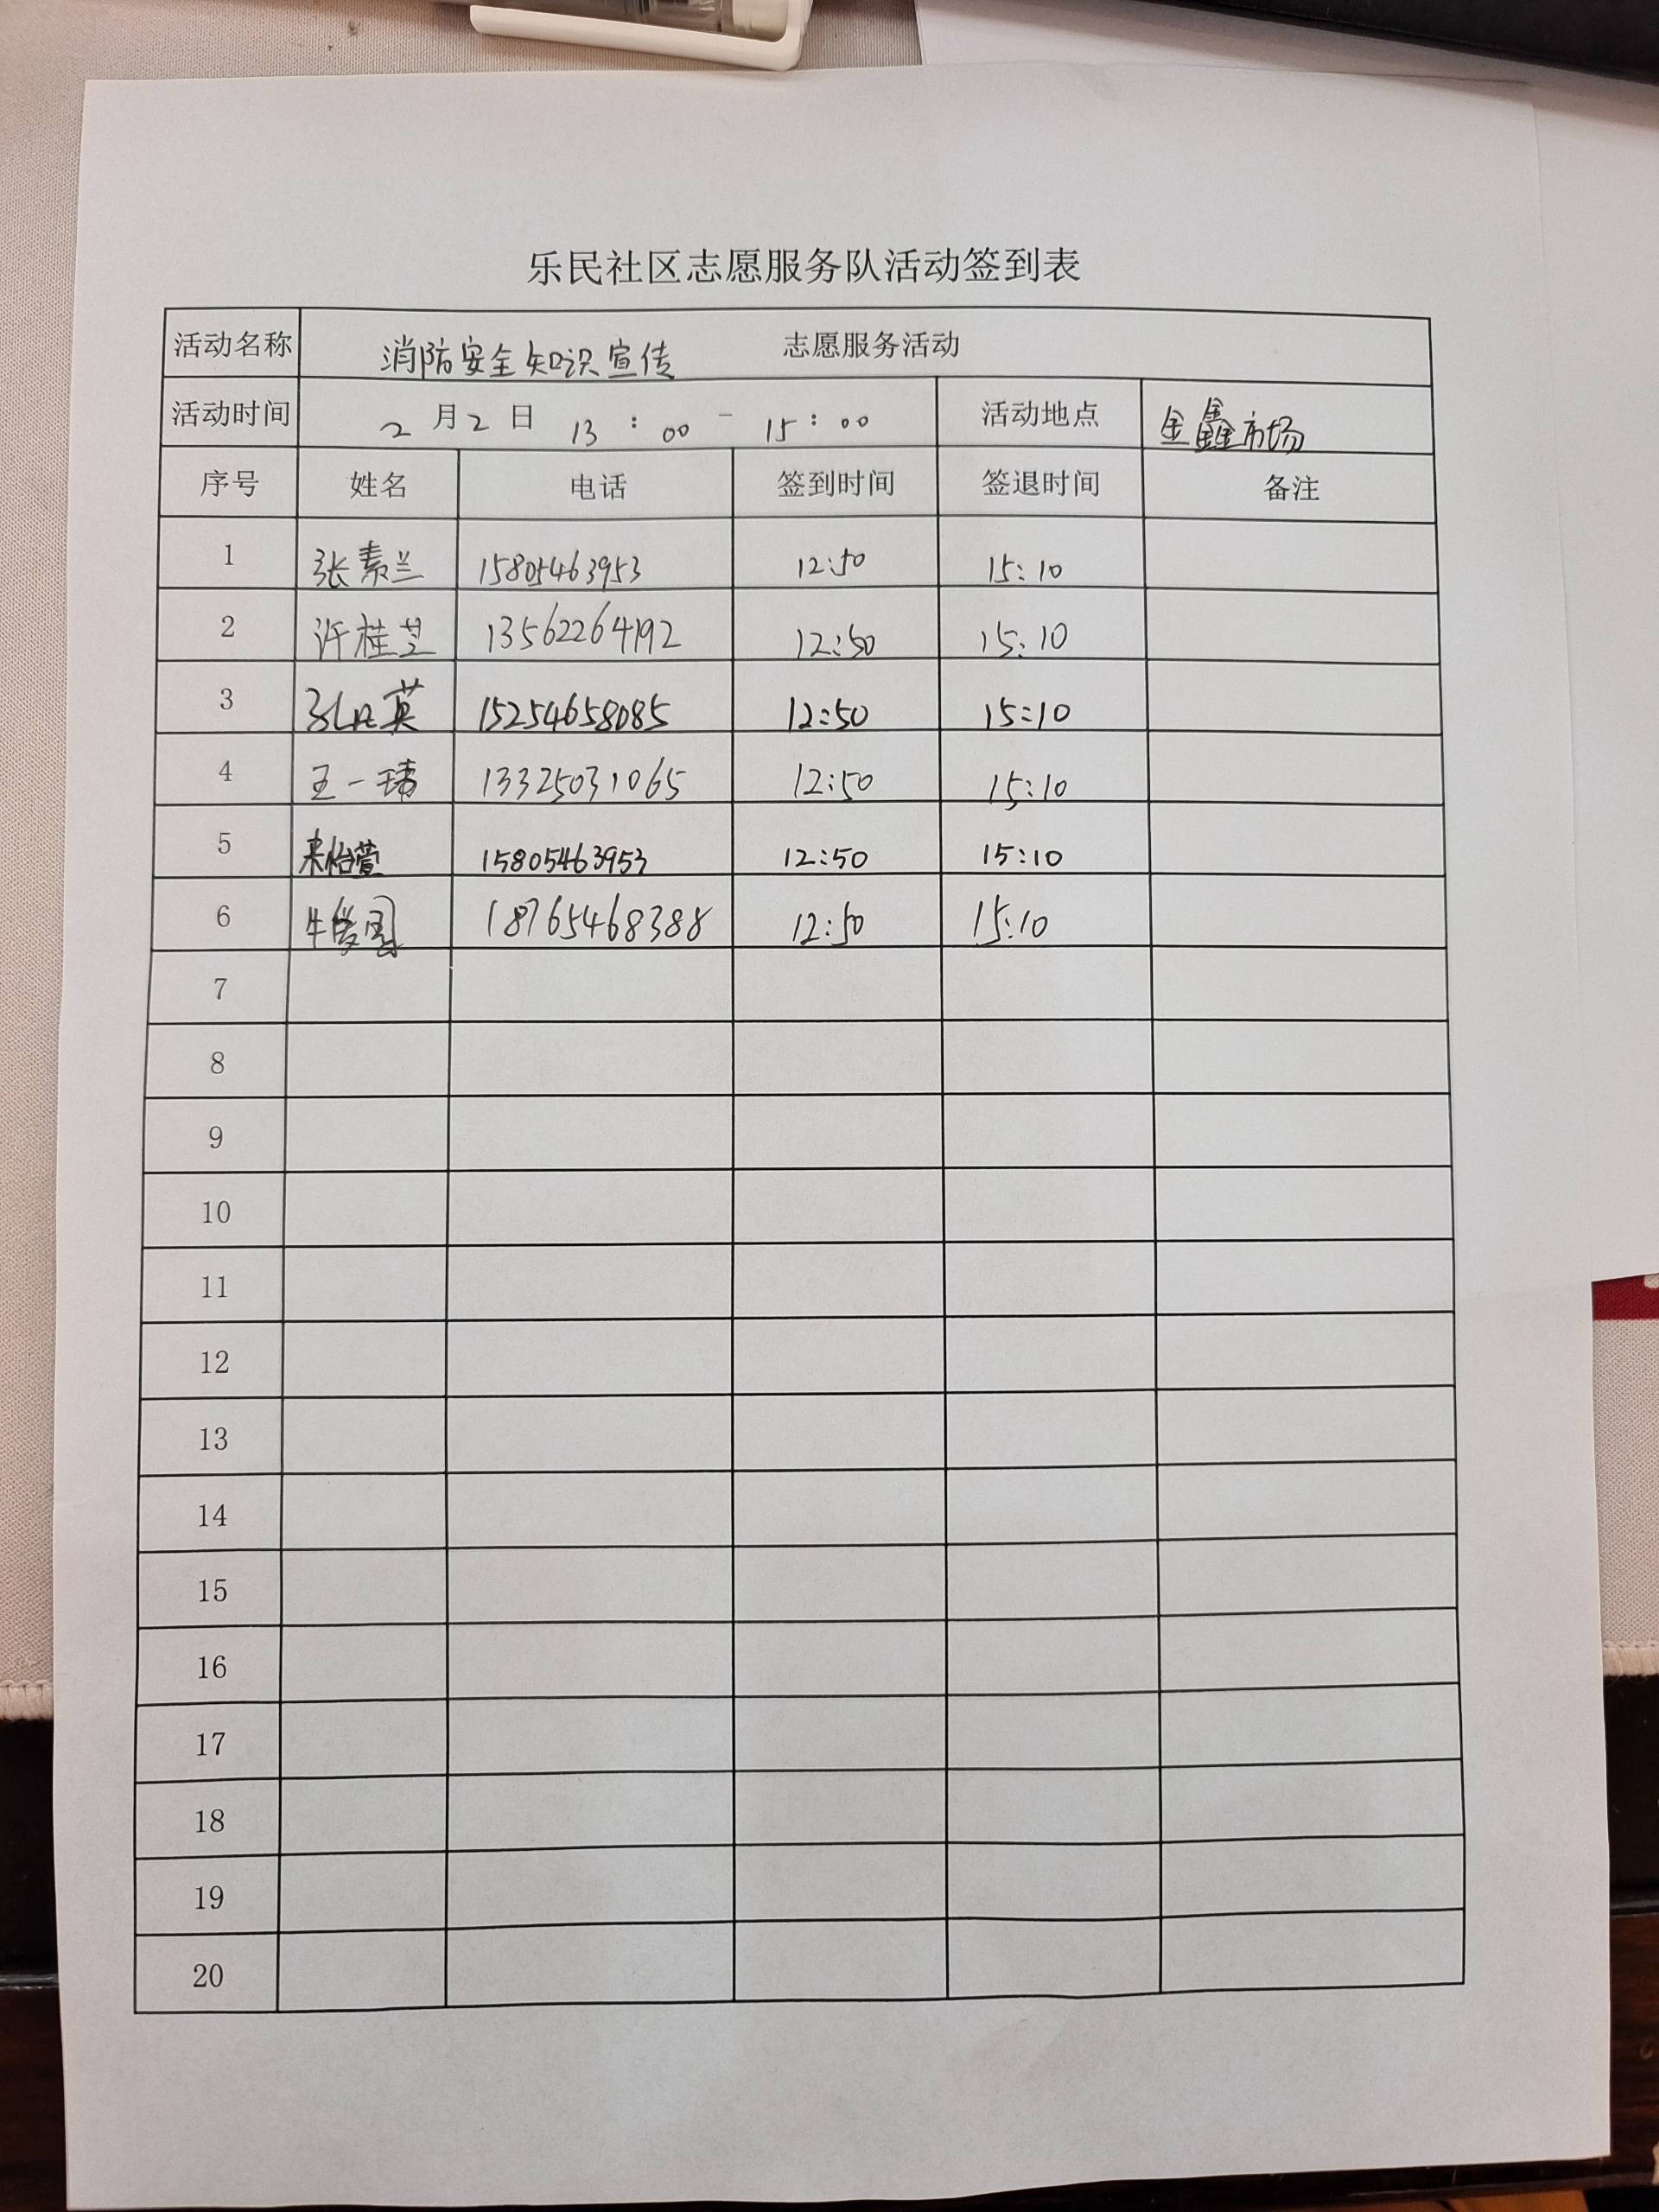 乐民社区志愿服务队活动签到表
活动名称 消防安全知识宣传 志愿服务活动
活动时间 2月2日 13:00-15:00 活动地点 金鑫市场
序号 姓名 电话 签到时间 签退时间 备注
1 张素兰 15805463953 12:50 15:10
2 许桂芝 13562264192 12:50 15:10
3 英 15254658085 12:50 15:10
4 王一玮 13325031065 12:50 15:10
5 来怡萱 15805463953 12:50 15:10
6 牛 18765468388 12:50 15:10
7
8
9
10
11
12
13
14
15
16
17
18
19
20